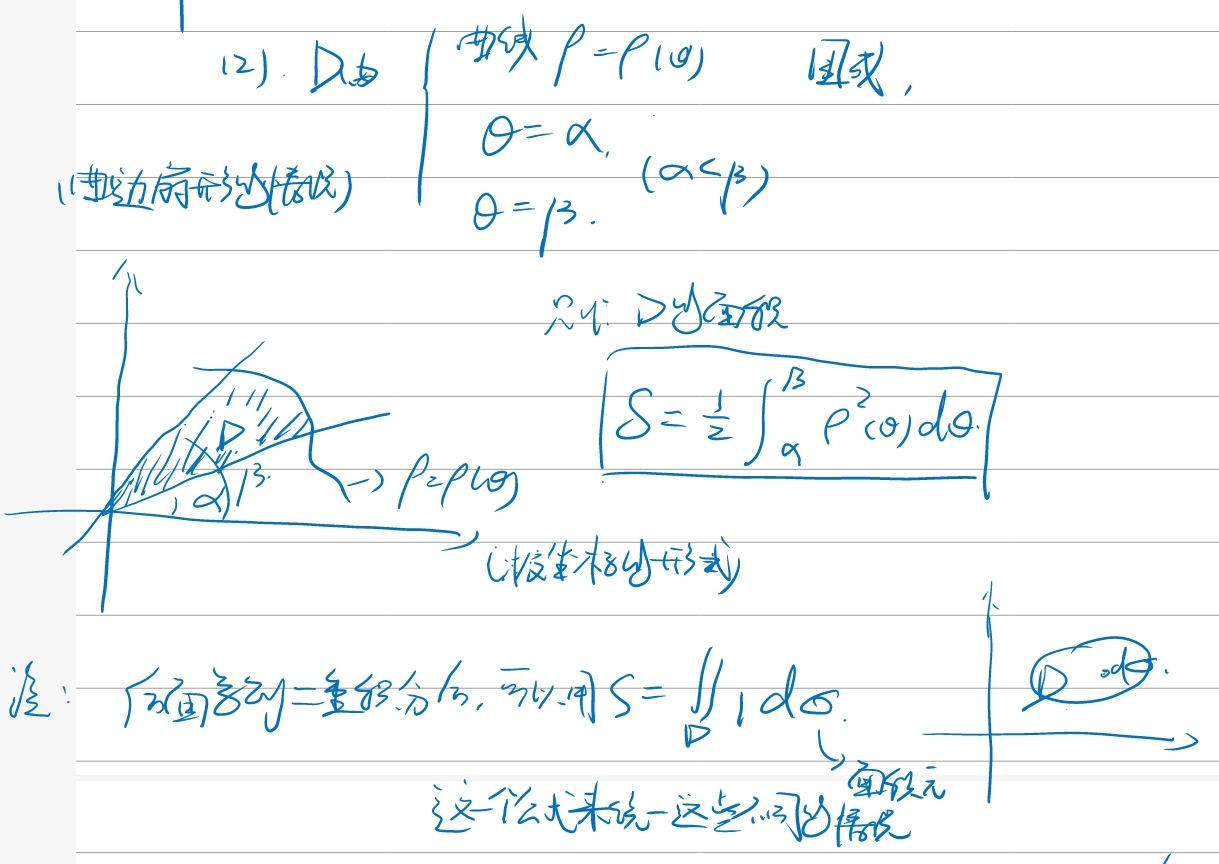 (2). D由 { 曲线 ρ=ρ(θ) 围成,
θ=α,
(α<β)
θ=β.
(曲边扇形的情况)
则: D的面积
S = 1/2 ∫_α^β ρ²(θ)dθ.
D
α β
→ ρ=ρ(θ)
(极坐标的形式)
注: 后面学到二重积分后, 可以用 S = ∬_D 1 dσ.
D dσ.
面积元
这一个公式来统一这些不同的情况